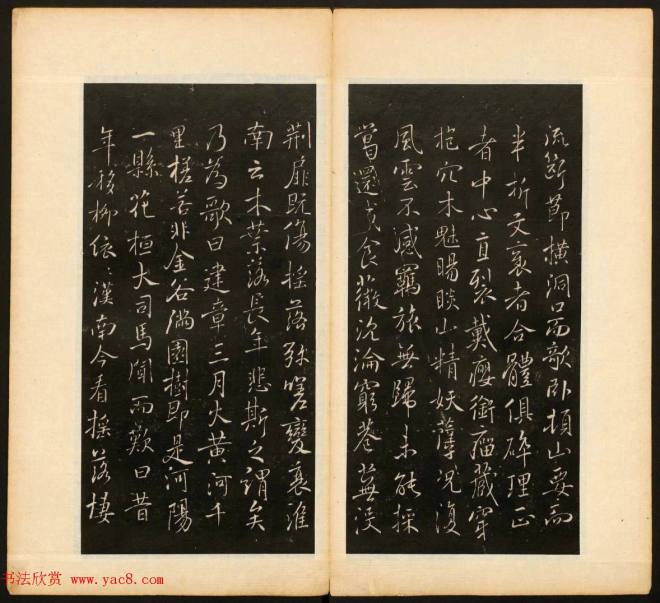 流斷節橫洞口而欹卧頓山要而
半折文衺者合體俱碎理正
者中心直裂戴癭銜瘤藏穿
抱穴木魅睗睒山精妖孽況復
風雲不感羈旅無歸未能採
葛還成食薇沉淪窮巷蕪沒
荊扉既傷搖落弥嗟變衰淮
南云木葉落長年悲斯之謂矣
乃為歌曰建章三月火黃河千
里槎若非金谷滿園樹即是河陽
一縣花桓大司馬聞而歎曰昔
年移柳依〻漢南今看搖落悽
书法欣赏 www.yac8.com